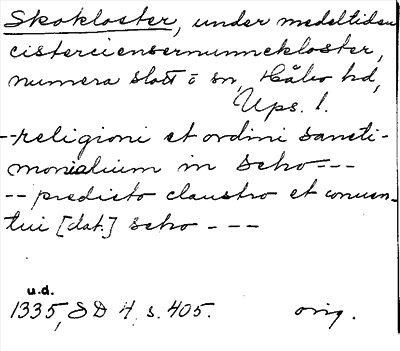 Skokloster, under medeltiden
cisterciensernunnekloster,
numera slott o sn, Håbo hd,
Ups. l.
--religioni et ordini sancti-
monialium in Scho---
-- predicto claustro et conuen-
tui [dat.] scho - - -
u.d.
1335, SD 4 s. 405. orig.